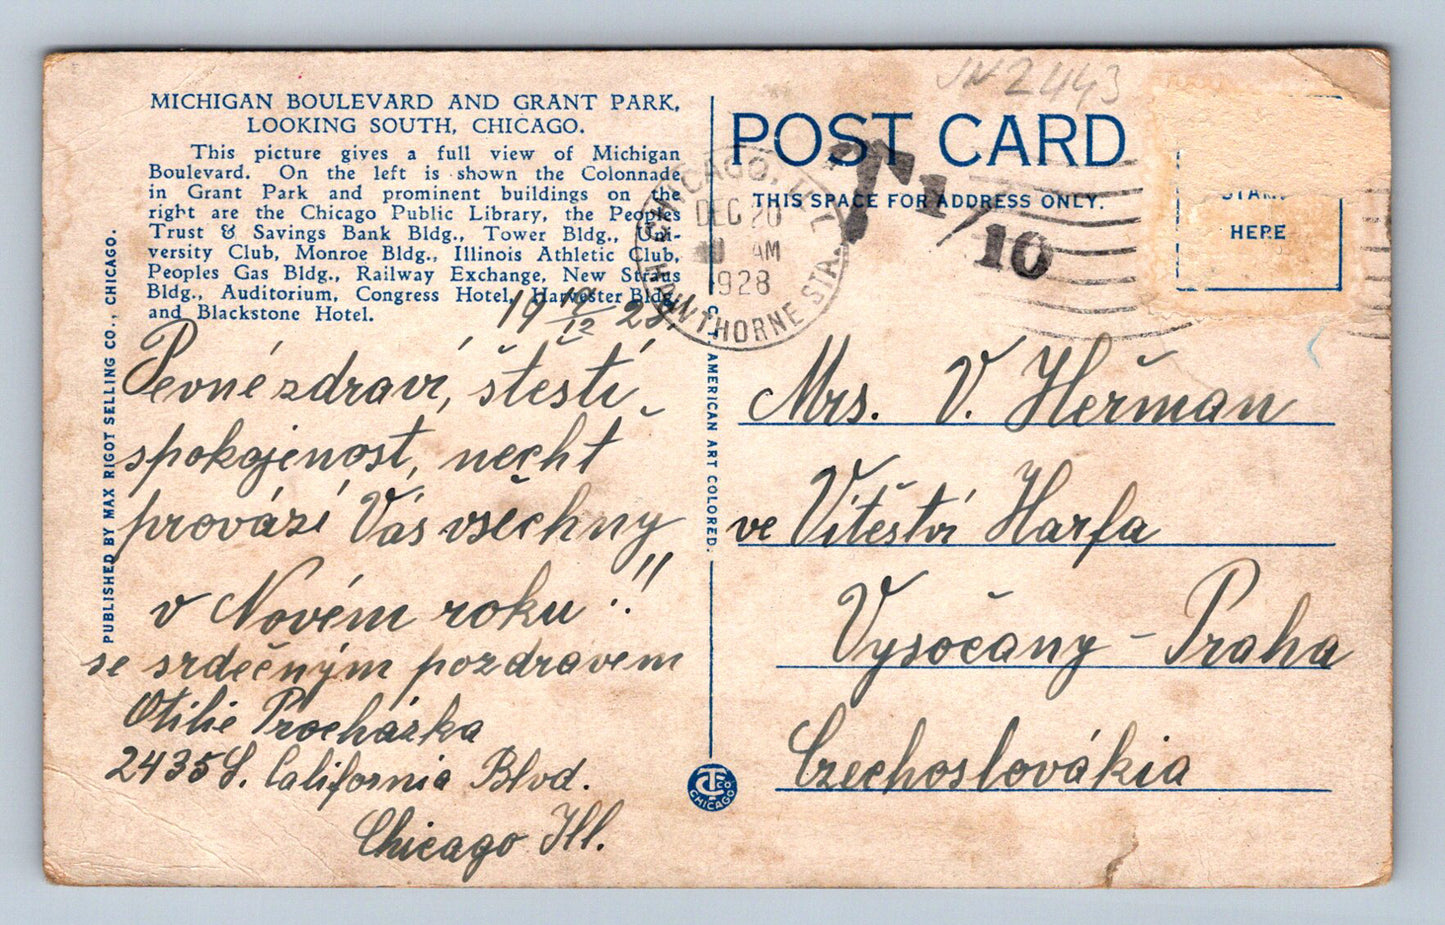 MICHIGAN BOULEVARD AND GRANT PARK,
LOOKING SOUTH, CHICAGO.
This picture gives a full view of Michigan
Boulevard. On the left is shown the Colonnade
in Grant Park and prominent buildings on the
right are the Chicago Public Library, the Peoples
Trust & Savings Bank Bldg., Tower Bldg., Uni-
versity Club, Monroe Bldg., Illinois Athletic Club,
Peoples Gas Bldg., Railway Exchange, New Straus
Bldg., Auditorium, Congress Hotel, Harvester Bldg.
and Blackstone Hotel.
PUBLISHED BY MAX RIGOT SELLING CO., CHICAGO.
19 19/12 28.
Pevné zdraví, štěstí
spokojenost, nechť
provází Vás všechny
v Novém roku!!
se srdečným pozdravem
Otilie Procházka
2435 S. California Blvd.
Chicago Ill.
C. T. AMERICAN ART COLORED.
CT CO
CHICAGO
JN2443
POST CARD
THIS SPACE FOR ADDRESS ONLY.
CHICAGO, ILL.
DEC 20
AM
1928
HAWTHORNE STA.
T 1/10
STAMP
HERE
Mrs. V. Heřman
ve Vítěství Harfa
Vysočany - Praha
Czechoslovákia